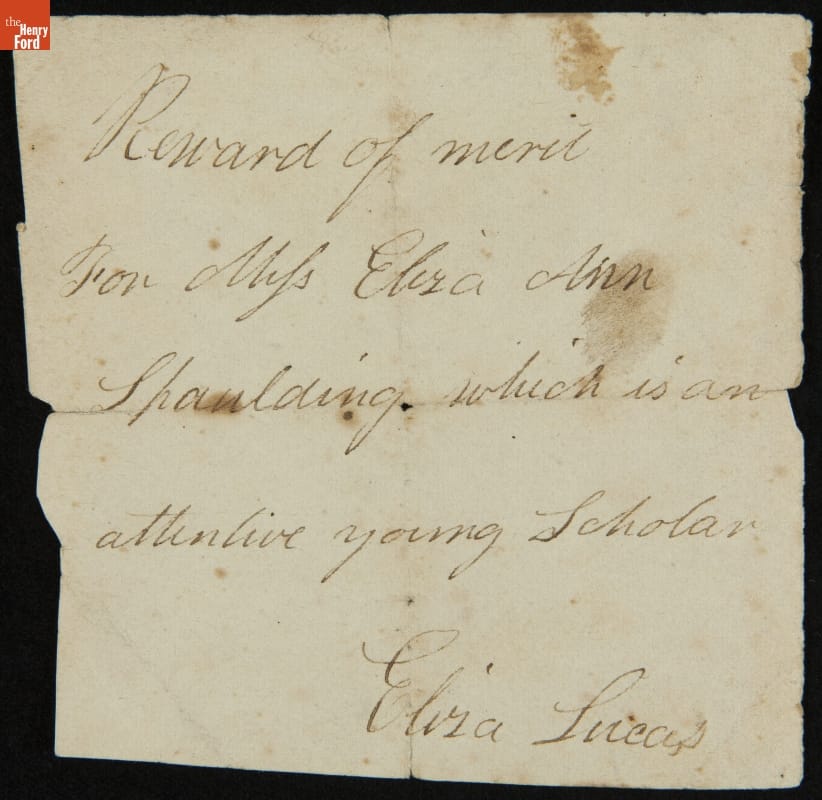 the
Henry
Ford
Reward of merit
For Miſs Eliza Ann
Spaulding which is an
attentive young Scholar
Eliza Lucas